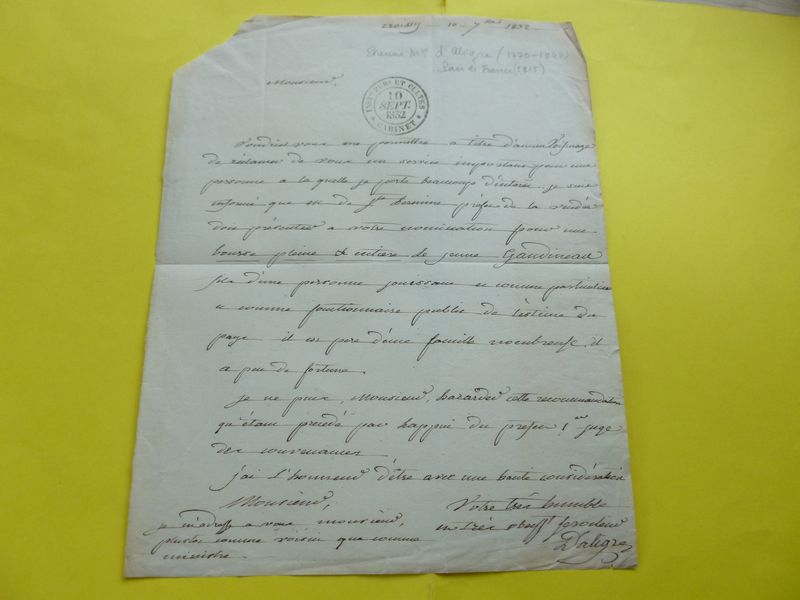 10 7bre 1832
Etienne Mis d'Aligre (1770-1847)
Pair de France (1815)
Monsieur,
INSTR. PUB. ET CULTES
10
SEPT.
1832
CABINET
Voudriez vous me permettre a titre d'ancien
de réclamer de vous un service important pour une
personne a la quelle je porte beaucoup d'intérêt. je suis
informé que M. de Ste hermine préfet de la vendée
doit présenter a votre nomination pour une
bourse pleine & entière le jeune Gaudineau
fils d'une personne jouissant et comme particulier
et comme fonctionnaire public de l'estime du
pays il est père d'une famille nombreuse, il
a peu de fortune.
je ne puis, Monsieur, hazarder cette recommandation
qu'étant précédé par l'appui du préfet ! juge
des convenances
j'ai l'honneur d'être avec une haute considération
Monsieur,
Votre très humble
et très obeisst serviteur
Daligre
je m'adresse a vous, monsieur,
plustot comme voisin que comme
ministre.